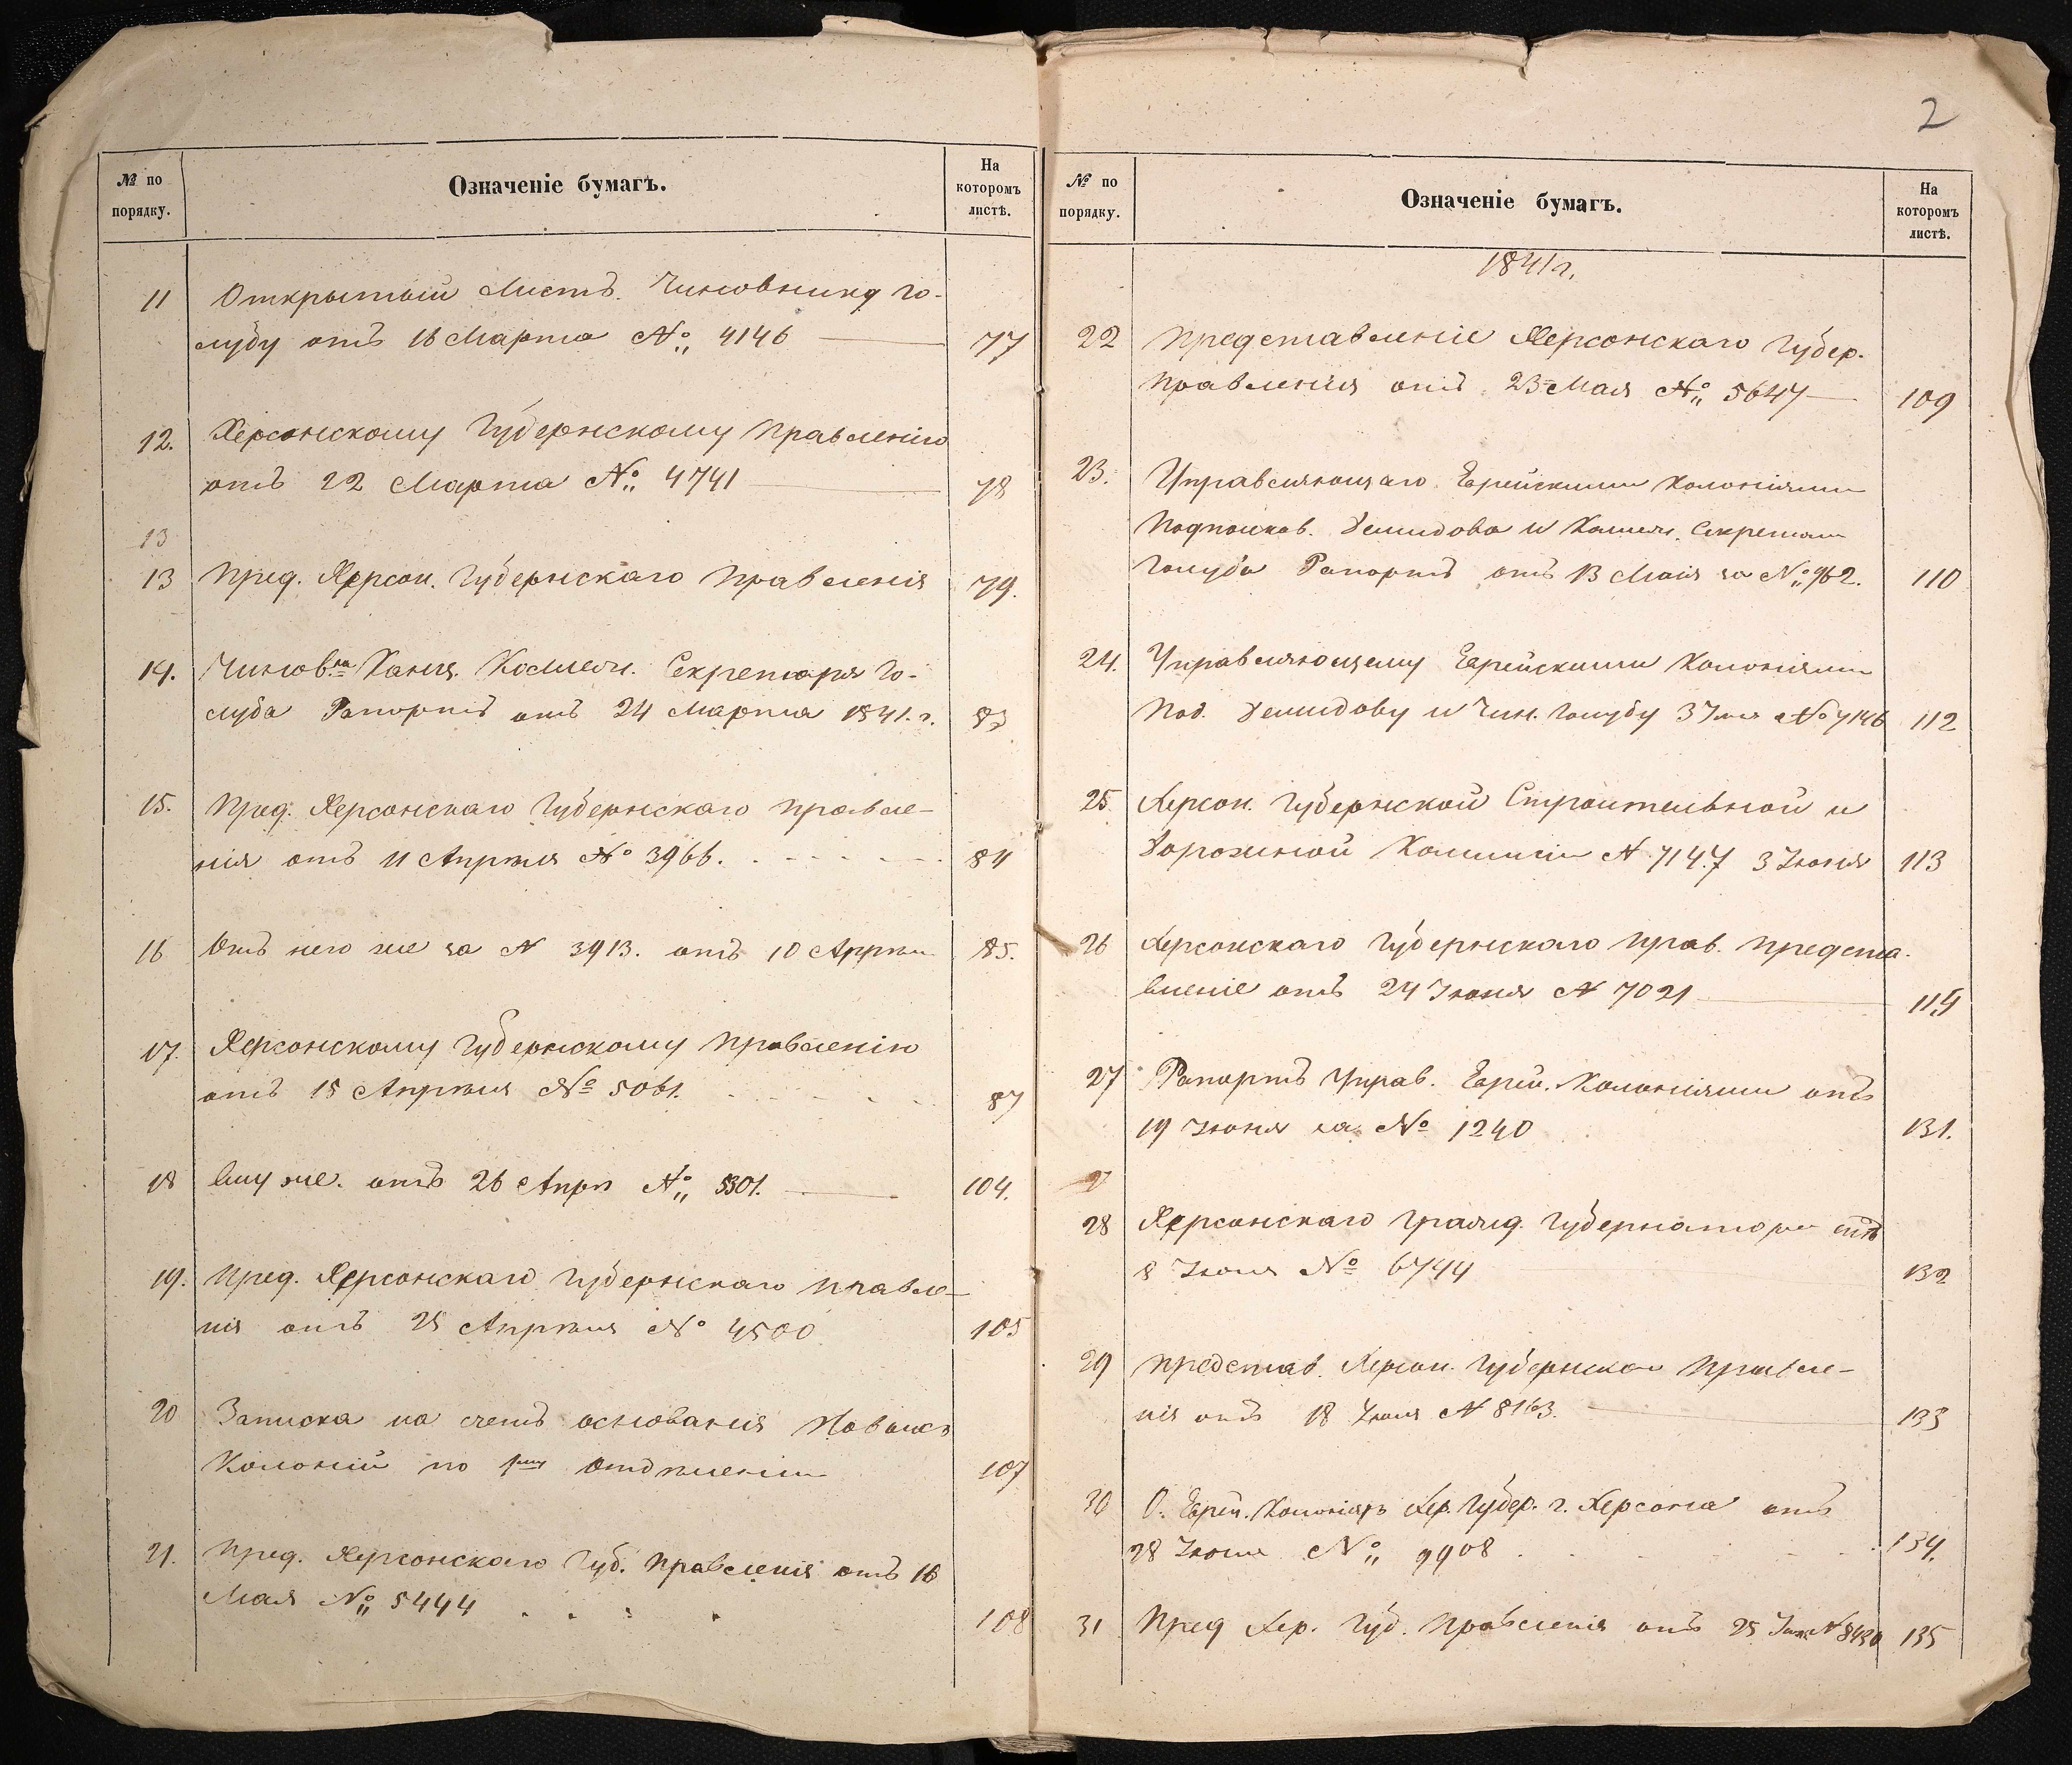 № по порядку.
Означеніе бумагъ.
На которомъ листѣ.
11 Открытый Листъ Чиновнику Го-
лубу отъ 16 Марта № 4146 77
12. Херсонскому Губернскому Правленію
отъ 22 Марта № 4741 78
13
13 Пред. Херсон. Губернскаго Правленія 79.
14. Чиновн.ка Канц. Коллеж. Секретаря Го-
луба Рапортъ отъ 24 Марта 1841. г. 83
15. Пред. Херсонскаго Губернскаго Правле-
нія отъ 11 Апрѣля № 3966. 84
16 Отъ него же за N 3913. отъ 10 Апрѣля 85.
17. Херсонскому Губернскому Правленію
отъ 15 Апрѣля № 5061. 87
18 Ему же. отъ 26 Апрѣ № 5301. 104.
19. Пред. Херсонскаго Губернскаго Правле-
нія отъ 25 Апрѣля № 4500 105
20 Записка на счетъ основанія Новыхъ
Колоній по Отдѣленію 107
21. Пред. Херсонскаго Губ. Правленія отъ 16
Мая № 5444 108
2
№ по порядку.
Означеніе бумагъ.
На которомъ листѣ.
1841 г.
22 Представленіе Херсонскаго Губер.
Правленія отъ 23 Мая № 5647 109
23. Управляющаго Еврейскими Колоніями
Подполков. Демидова и Коллеж. Секретаря
Голуба Рапортъ отъ 13 Маія за № 962. 110
24. Управляющему Еврейскими Колоніями
Под. Демидову и Чин. Голубу 3 Іюня № 7146 112
25. Херсон. Губернской Строительной и
Дорожной Коммисіи N 7147 3 Іюня 113
26 Херсонскаго Губернскаго Прав. Предста-
вленіе отъ 24 Іюня N 7021 115
27 Рапортъ Управ. Еврей. Колоніями отъ
19 Іюня за № 1240 131.
27
28 Херсонскаго Гражд. Губернатора отъ
8 Іюля № 6744 132
29 Представ. Херсон. Губернскаго Правле-
нія отъ 18 Іюля N 8163. 133
30 О. Еврей. Колоніяхъ Хер. Губер. г. Херсона отъ
28 Іюля № 9908 134.
31 Пред Хер. Губ. Правленія отъ 25 N 8430 135